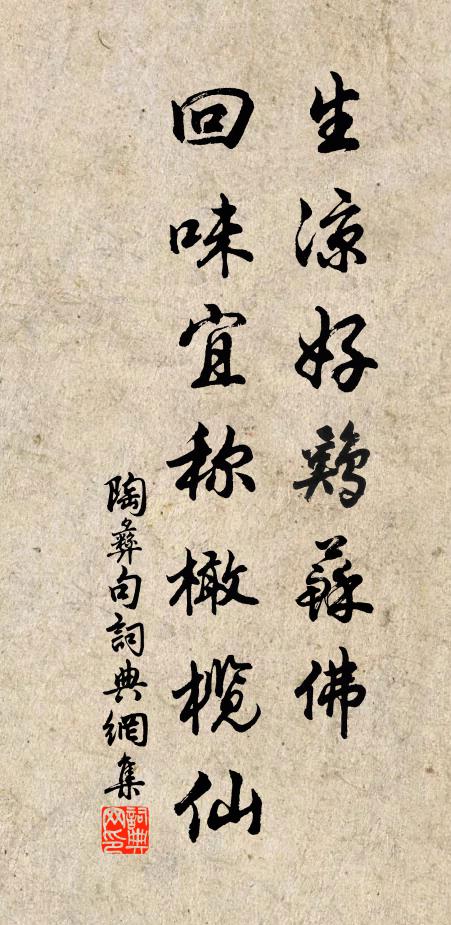 生凉好鷄蘇佛
回味宜称橄榄仙
陶彝句詞典網集
詞典
网印